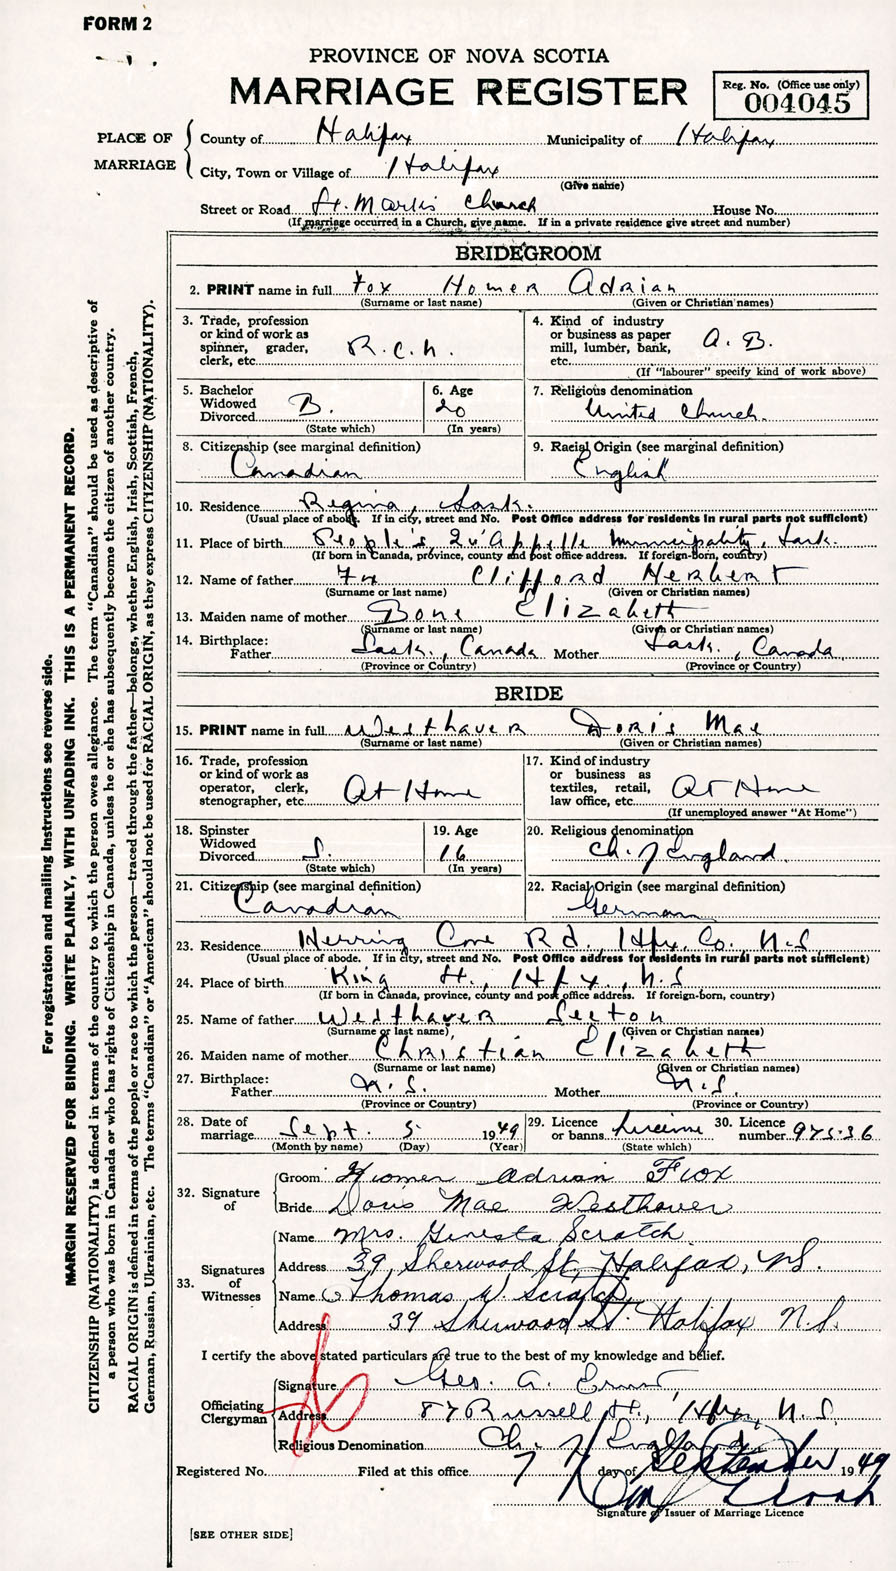 FORM 2
PROVINCE OF NOVA SCOTIA
MARRIAGE REGISTER
Reg. No. (Office use only)
004045
PLACE OF MARRIAGE
County of Halifax Municipality of Halifax
City, Town or Village of Halifax
(Give name)
Street or Road St. Mark's Church House No.
(If marriage occurred in a Church, give name. If in a private residence give street and number)
BRIDEGROOM
2. PRINT name in full Fox Homer Adrian
(Surname or last name) (Given or Christian names)
3. Trade, profession or kind of work as spinner, grader, clerk, etc. R.C.N.
4. Kind of industry or business as paper mill, lumber, bank, etc. A.B.
(If "labourer" specify kind of work above)
5. Bachelor Widowed Divorced B.
(State which)
6. Age 20
(In years)
7. Religious denomination United Church
8. Citizenship (see marginal definition) Canadian
9. Racial Origin (see marginal definition) English
10. Residence Regina, Sask.
(Usual place of abode. If in city, street and No. Post Office address for residents in rural parts not sufficient)
11. Place of birth People's, Qu'Appelle Municipality, Sask.
(If born in Canada, province, county and post office address. If foreign-born, country)
12. Name of father Fox Clifford Herbert
(Surname or last name) (Given or Christian names)
13. Maiden name of mother Bone Elizabeth
(Surname or last name) (Given or Christian names)
14. Birthplace: Father Sask., Canada Mother Sask., Canada
(Province or Country) (Province or Country)
BRIDE
15. PRINT name in full Westhaver Doris Mae
(Surname or last name) (Given or Christian names)
16. Trade, profession or kind of work as operator, clerk, stenographer, etc. At Home
17. Kind of industry or business as textiles, retail, law office, etc. At Home
(If unemployed answer "At Home")
18. Spinster Widowed Divorced S.
(State which)
19. Age 16
(In years)
20. Religious denomination Ch. of England
21. Citizenship (see marginal definition) Canadian
22. Racial Origin (see marginal definition) German
23. Residence Herring Cove Rd., Hfx. Co. N.S.
(Usual place of abode. If in city, street and No. Post Office address for residents in rural parts not sufficient)
24. Place of birth King St., Hfx., N.S
(If born in Canada, province, county and post office address. If foreign-born, country)
25. Name of father Westhaver Seeton
(Surname or last name) (Given or Christian names)
26. Maiden name of mother Christian Elizabeth
(Surname or last name) (Given or Christian names)
27. Birthplace: Father N.S. Mother N.S.
(Province or Country) (Province or Country)
28. Date of marriage Sept. 5 1949
(Month by name) (Day) (Year)
29. Licence or banns Licence
(State which)
30. Licence number 97536
32. Signature of
Groom Homer Adrian Fox
Bride Doris Mae Westhaver
33. Signatures of Witnesses
Name Mrs. Ginesta Scratch
Address 39, Sherwood St, Halifax, NS.
Name Thomas W. Scratch
Address 39 Sherwood St. Halifax N.S.
I certify the above stated particulars are true to the best of my knowledge and belief.
Officiating Clergyman
Signature Geo. A. Ernst
Address 87 Russell St., Hfx, N.S.
Religious Denomination Ch. of England
Registered No. Filed at this office 7 day of September 1949
Signature of Issuer of Marriage Licence
[SEE OTHER SIDE]
For registration and mailing instructions see reverse side.
MARGIN RESERVED FOR BINDING. WRITE PLAINLY, WITH UNFADING INK. THIS IS A PERMANENT RECORD.
CITIZENSHIP (NATIONALITY) is defined in terms of the country to which the person owes allegiance. The term "Canadian" should be used as descriptive of
a person who was born in Canada or who has rights of Citizenship in Canada, unless he or she has subsequently become the citizen of another country.
RACIAL ORIGIN is defined in terms of the people or race to which the person—traced through the father—belongs, whether English, Irish, Scottish, French,
German, Russian, Ukrainian, etc. The terms "Canadian" or "American" should not be used for RACIAL ORIGIN, as they express CITIZENSHIP (NATIONALITY).